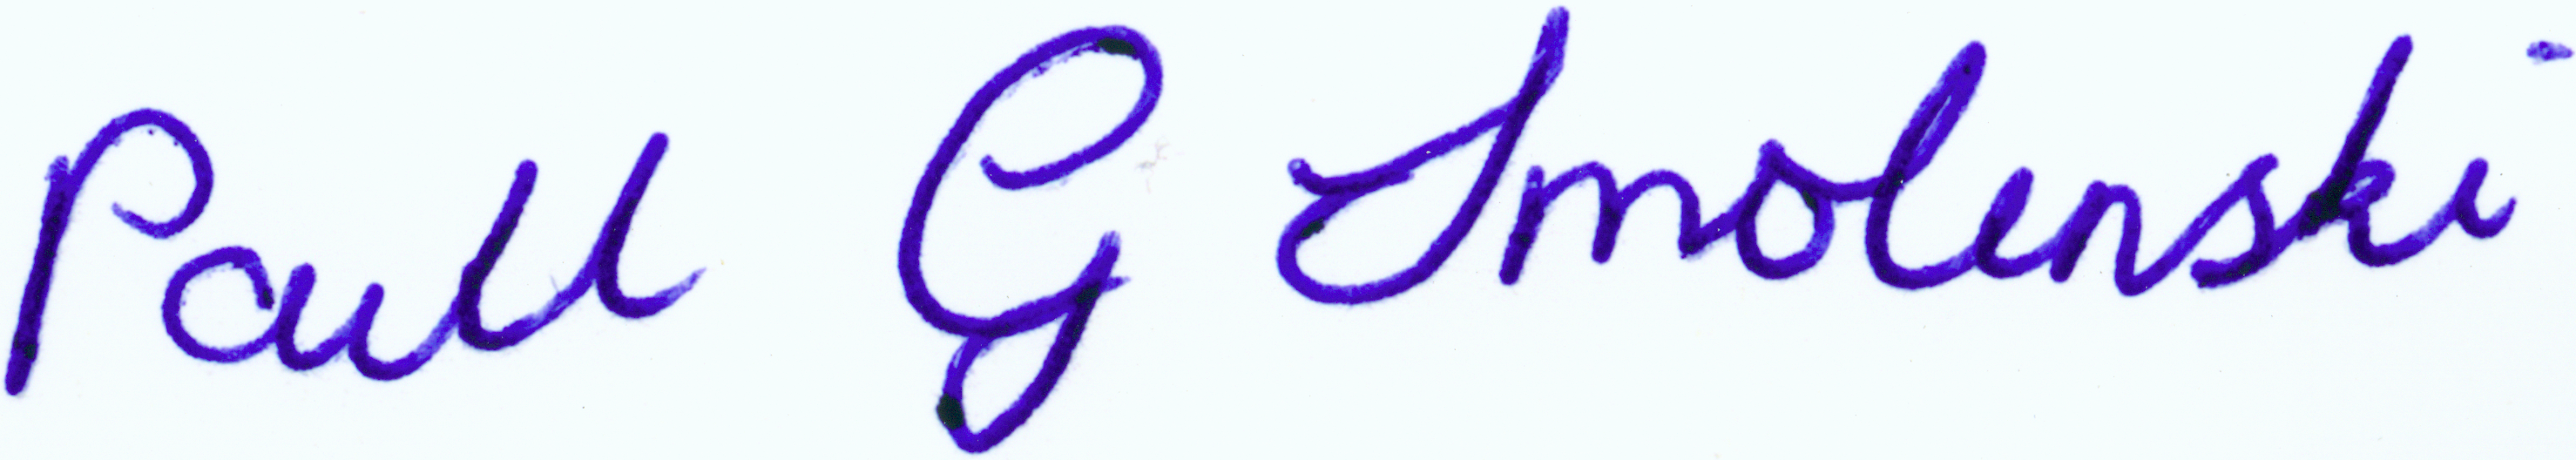 Paull G Smolenski